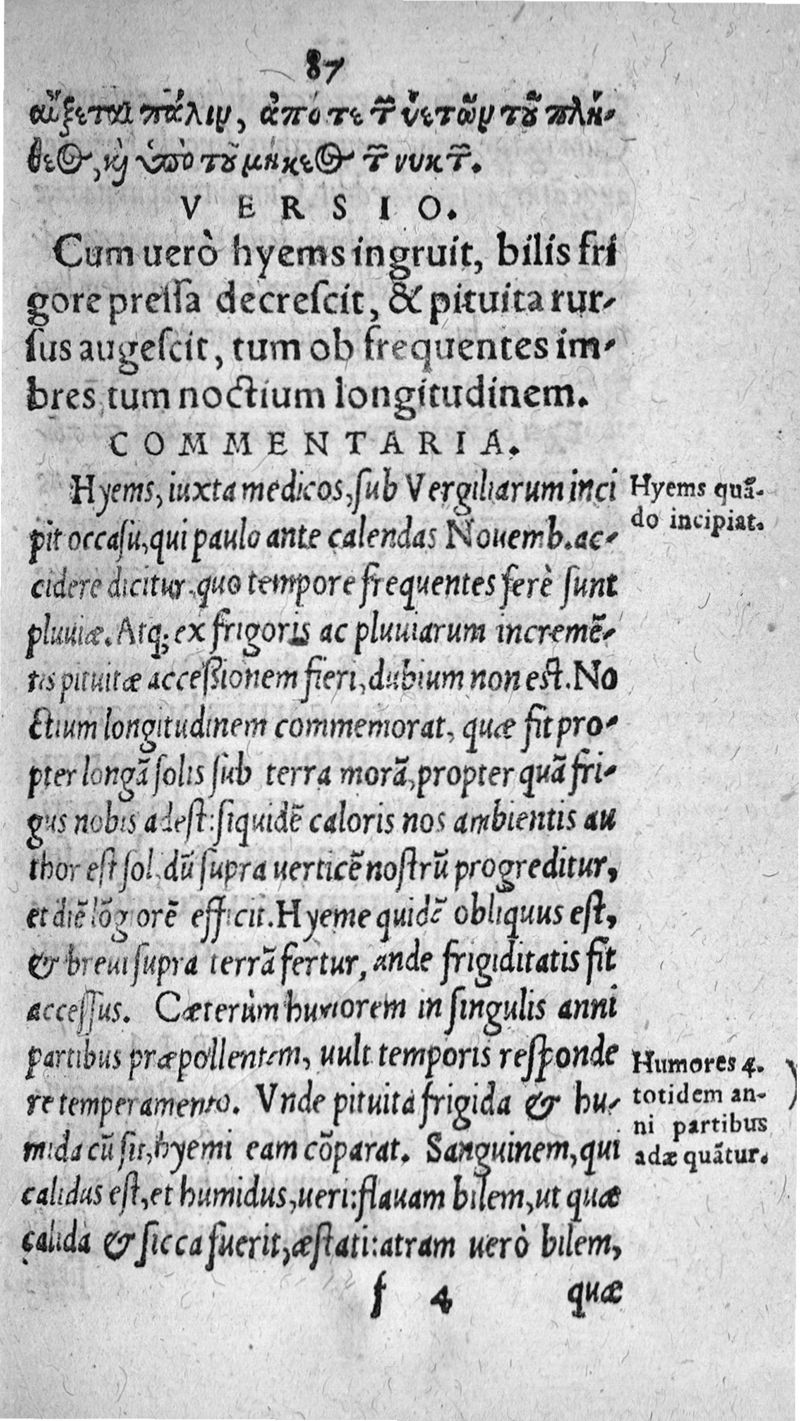 87
αὔξεται πάλιν, ἀπό τε τ͂ ὑετῶν τοῦ πλή-
θεος, καὶ ὑπὸ τοῦ μήκεος τ͂ νυκτ͂.
VERSIO.
Cum uerò hyems ingruit, bilis fri
gore pressa decrescit, & pituita rur-
sus augescit, tum ob frequentes im-
bres tum noctium longitudinem.
COMMENTARIA.
Hyems, iuxta medicos, sub Vergiliarum inci
pit occasu, qui paulo ante calendas Nouemb. ac-
cidere dicitur. quo tempore frequentes ferè sunt
pluuiæ. Atq; ex frigoris ac pluuiarum incremẽ-
tis pituitæ accessionem fieri, dubium non est. No
ctium longitudinem commemorat, quæ fit pro-
pter longã solis sub terra morã, propter quã fri-
gus nobis adest: siquidẽ caloris nos ambientis au
thor est sol. dũ supra uerticẽ nostrũ progreditur,
et diẽ lõgiorẽ efficit. Hyeme quidẽ obliquus est,
& breui supra terrã fertur, unde frigiditatis fit
accessus. Cæterùm humorem in singulis anni
partibus præpollentem, uult temporis responde
re temperamento. Vnde pituita frigida & hu-
mida cũ sit, hyemi eam cõparat. Sanguinem, qui
calidus est, et humidus, ueri: flauam bilem, ut quæ
calida & sicca fuerit, æstati: atram uerò bilem,
f 4 quæ
Hyems quã-
do incipiat.
Humores 4.
totidem an-
ni partibus
adæquãtur.